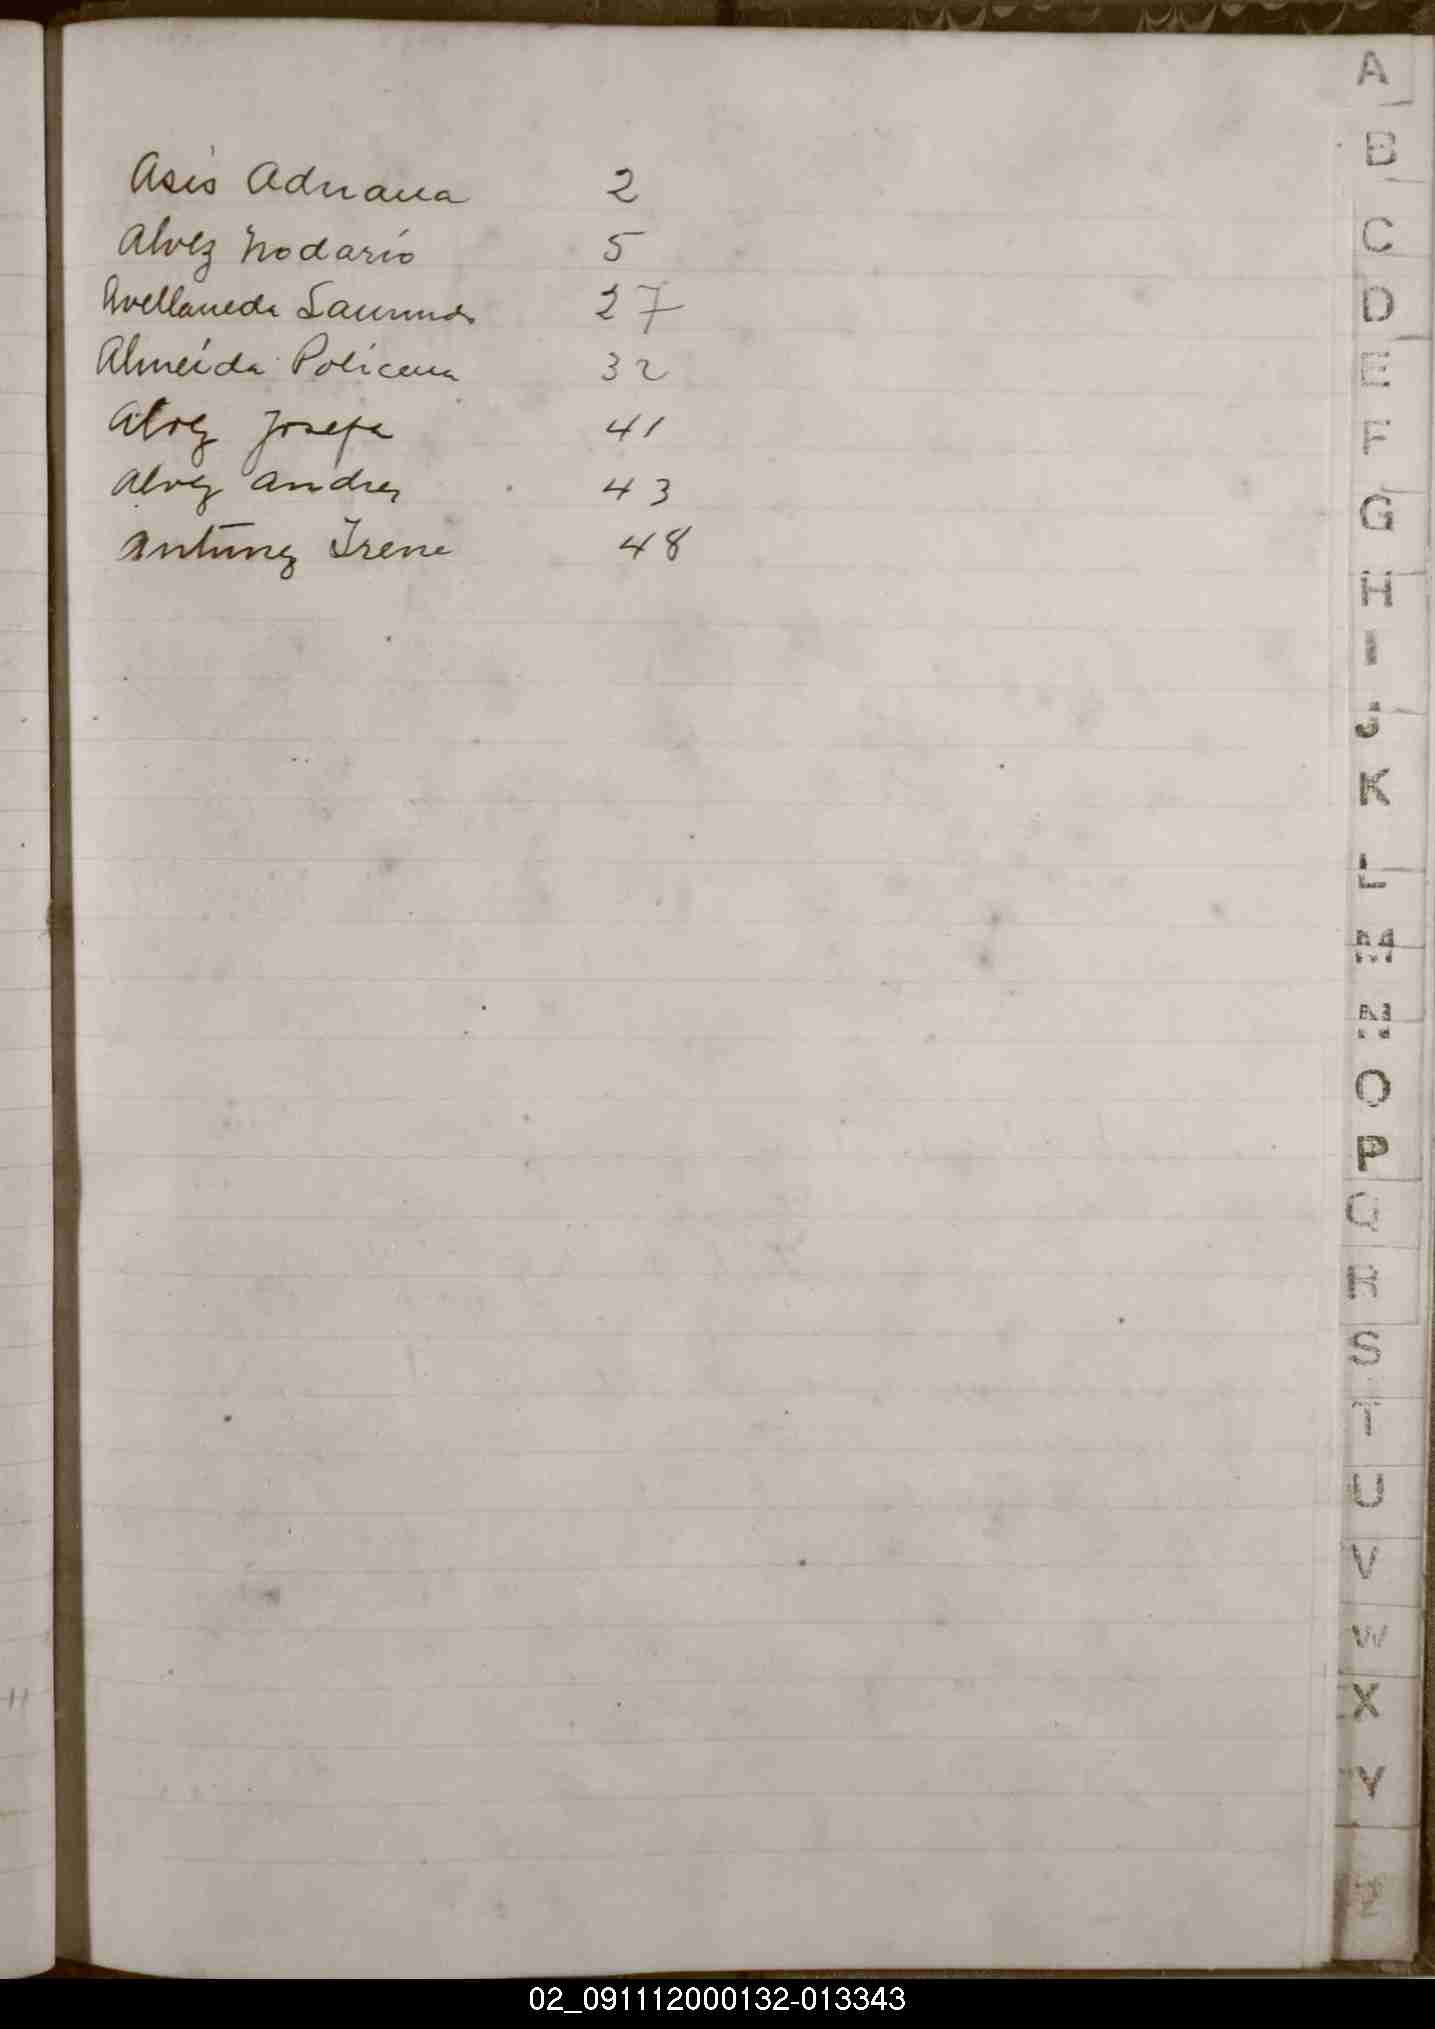 Asis Adriana 2
Alvez Nodario 5
Avellaneda 27
Almeida Policena 32
Alvez Josefa 41
Alvez Andres 43
Antunez Irene 48
A
B
C
D
E
F
G
H
I
J
K
L
M
N
O
P
Q
R
S
T
U
V
W
X
Y
Z
02_091112000132-013343